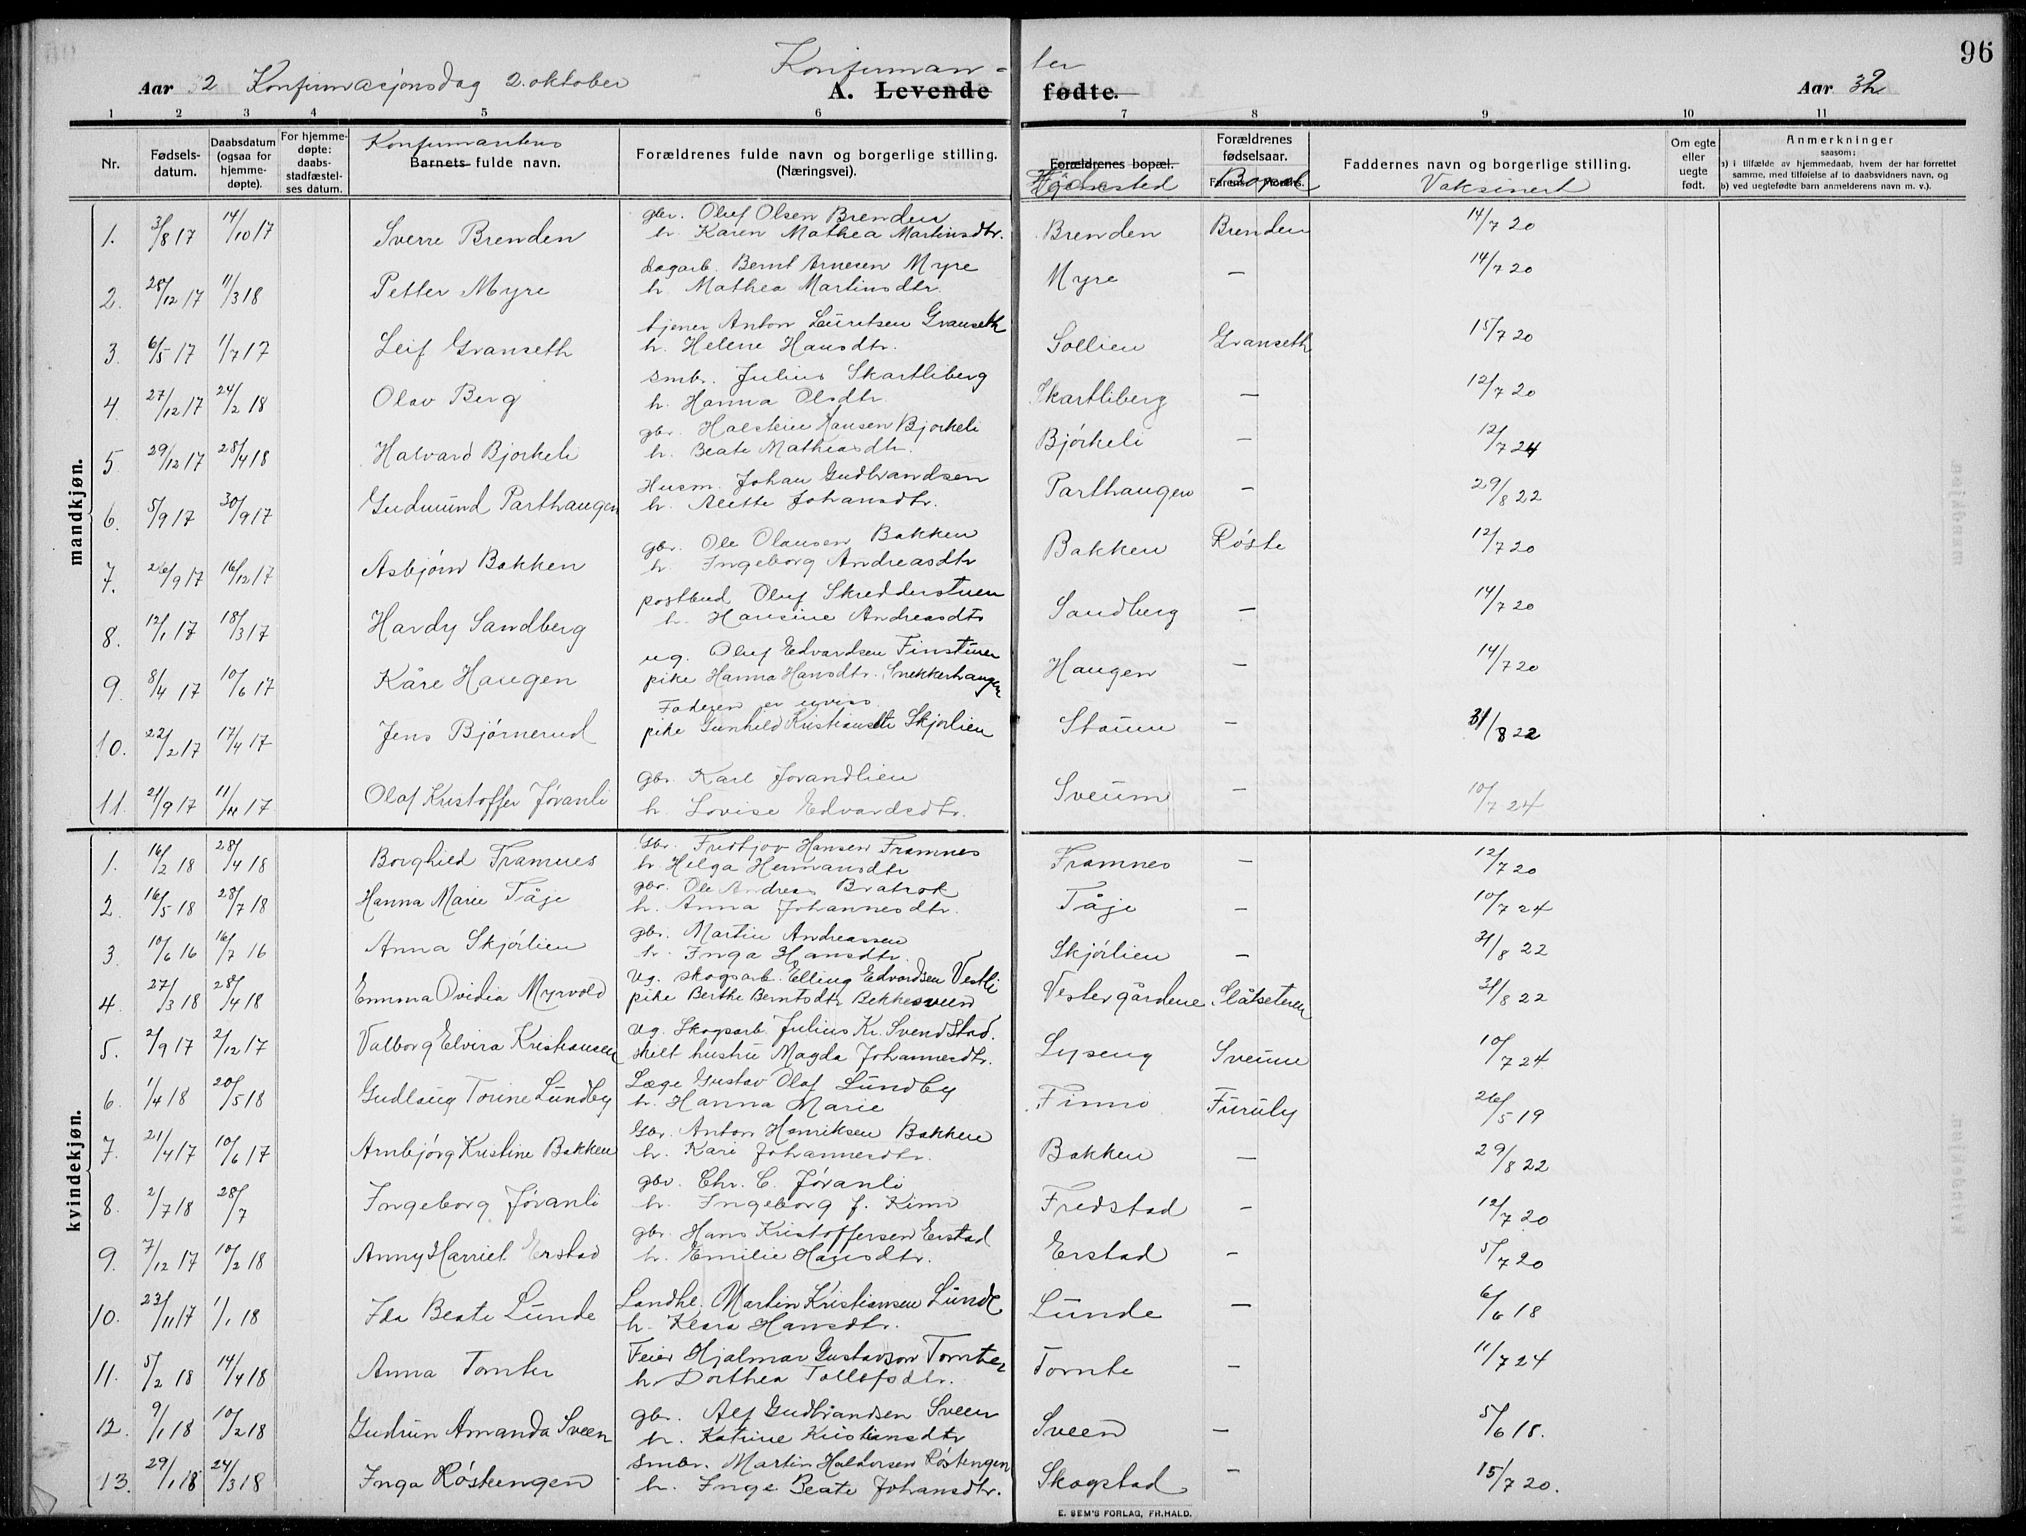 Konfirman- ter
96
Aar 32 Konfirmasjonsdag 2. oktober A. Levende fødte. Aar 32
1 2 3 4 5 6 7 8 9 10 11
Nr. Fødsels-datum. Daabsdatum (ogsaa for hjemme-døpte). For hjemme-døpte: daabs-stadfæstel-ses datum. Konfirmantens Barnets fulde navn. Forældrenes fulde navn og borgerlige stilling. (Næringsvei). Forældrenes bopæl. Forældrenes fødselsaar. Faddernes navn og borgerlige stilling. Vaksinert Om egte eller uegte født. Anmerkninger saasom: a) i tilfælde av hjemmedaab, hvem der har forrettet samme, med tilføielse af to daabsvidners navn, og b) ved uegtefødte barn anmelderens navn m. v.).
Fødested Farens Bopæl Morens.
mandkjøn.
1. 3/8 17 14/10 17 Sverre Brenden gbr. Oluf Olsen Brenden
h. Karen Mathea Martinsdtr. Brenden Brenden 14/7 20
2. 28/12 17 11/3 18 Petter Myre dagarb. Bernt Arnesen Myre
h. Mathea Martinsdtr. Myre — 14/7 20
3. 6/5 17 1/7 17 Leif Granseth tjener Anton Lauritsen Granseth
h. Helene Hansdtr. Sollien Granseth 15/7 20
4. 27/12 17 24/2 18 Olav Berg smbr. Julius Skartliberg
h. Hanna Olsdtr. Skartliberg — 12/7 20
5. 29/12 17 28/4 18 Halvard Bjørkeli gbr. Halstein Hansen Bjørkeli
h. Beate Mathiasdtr. Bjørkeli — 12/7 24
6. 5/9 17 30/9 17 Gudmund Parthaugen Husm. Johan Gudbrandsen
h. Alette Johansdtr. Parthaugen — 29/8 22
7. 26/9 17 16/12 17 Asbjørn Bakken gbr. Ole Olausen Bakken
h. Ingeborg Andreasdtr Bakken Røste 12/7 20
8. 12/1 17 18/3 17 Hardy Sandberg postbud Oluf Skredderstuen
h. Hansine Andreasdtr Sandberg — 14/7 20
9. 8/4 17 10/6 17 Kåre Haugen ug. Oluf Edvardsen Finstuen
pike Hanna Hansdtr. Snekkerhaugen Haugen — 14/7 20
10. 22/2 17 17/4 17 Jens Bjørnerud Faderen er uviss.
pike Gunhild Kristiansdtr Skjørlien — 31/8 22
11. 21/9 17 11/11 17 Olaf Kristoffer Jøranli gbr. Karl Jørandlien
h. Lovise Edvardsdtr. Sveum — 10/7 24
kvindekjøn.
1. 16/2 18 28/4 18 Borghild Framnes Gbr. Fridtjov Hansen Framnes
h. Helga Hermansdtr Framnes — 12/7 20
2. 16/5 18 28/7 18 Hanna Marie Tåje gbr. Ole Andreas Bratrok
h. Anna Johannesdtr. Tåje — 10/7 24
3. 10/6 16 16/7 16 Anna Skjørlien gbr. Martin Andreassen
h. Inga Hansdtr. Skjørlien — 31/8 22
4. 27/3 18 28/4 18 Emma Ovidia Myrvold Ug. skogsarb. Elling Edvardsen Vestli
pike Berthe Berntsdtr Bekkesveen Vestergårdene Slåtseteren 31/8 22
5. 2/9 17 2/12 17 Valborg Elvira Kristiansen Ug. Skogsarb. Julius Kr. Svendstad.
skilt hustru Magda Johannesdtr. Lyseng Sveum 10/7 24
6. 1/4 18 20/5 18 Gudlaug Torine Lundby Læge Gustav Olaf Lundby
h. Hanna Marie Finno Furuly 26/5 19
7. 21/4 17 10/6 17 Arnbjørg Kristine Bakken Gbr. Anton Henriksen Bakken
h. Kari Johannesdtr. Bakken — 29/8 22
8. 2/7 18 28/7 Ingeborg Jøranli gbr. Chr. C. Jøranli
h. Ingeborg J. Kinn Fredstad — 12/7 20
9. 7/12 17 10/2 18 Anny Harriet Erstad gbr. Hans Kristoffersen Erstad
h. Emilie Hansdtr. Erstad — 5/7 20
10. 23/11 17 1/1 18 Ida Beate Lunde Landh. Martin Kristiansen Lunde
h. Klara Hansdtr. Lunde — 6/6 18
11. 5/2 18 14/4 18 Anna Tomter Feier Hjalmar Gustavson Tomter
h. Dorthea Tollefsdtr. Tomte — 11/7 24
12. 9/1 18 10/2 18 Gudrun Amanda Sveen gbr. Alf Gudbrandsen Sveen
h. Katrine Kristiansdtr Sveen — 5/6 18.
13. 29/1 18 24/3 18 Inga Røstengen smbr. Martin Halvorsen Røstengen
h. Inge Beate Johansdtr. Skogstad — 15/7 20.
E. SEM'S FORLAG, FR.HALD.